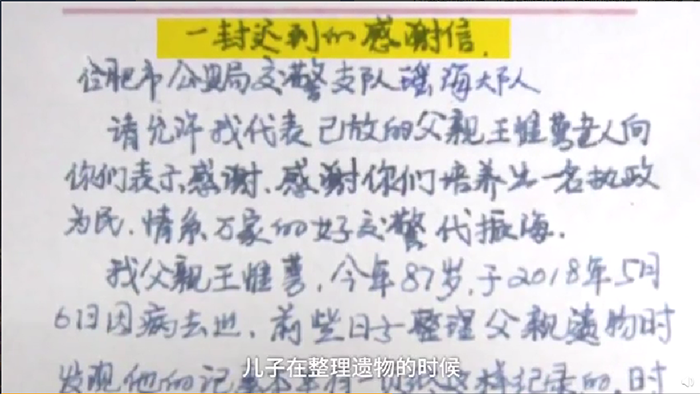 一封迟到的感谢信.
合肥市公安局交警支队瑶海大队
请允许我代表已故的父亲王惟 老人向
你们表示感谢、感谢你们培养出一名执政
为民、情系万家的好交警代振海.
我父亲王惟 ,今年87岁,于2018年5月
6日因病去世、前些日子整理父亲遗物时
儿子在整理遗物的时候
发现他的记 有一 这样纪录的,时